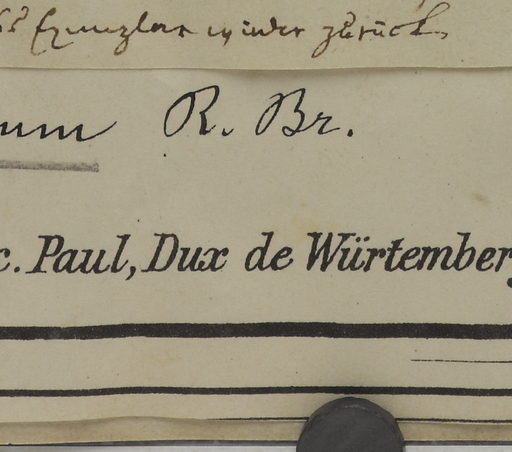 Exemplar wieder zurück.
um R. Br.
c. Paul, Dux de Würtemberg